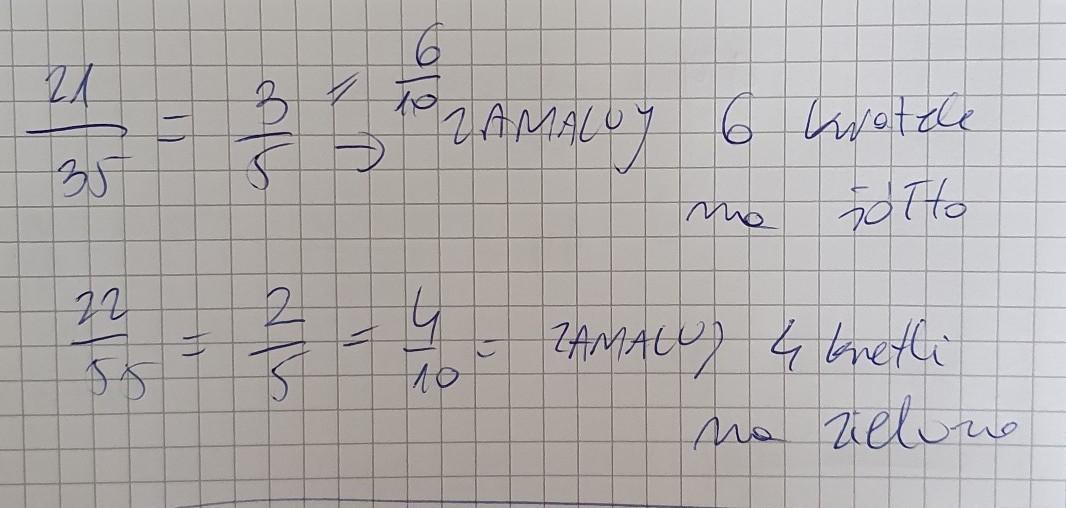 21/35 = 3/5 = 6/10 → ZAMALUJ 6 kratek
na żółto
22/55 = 2/5 = 4/10 = ZAMALUJ 4 kratki
na zielono